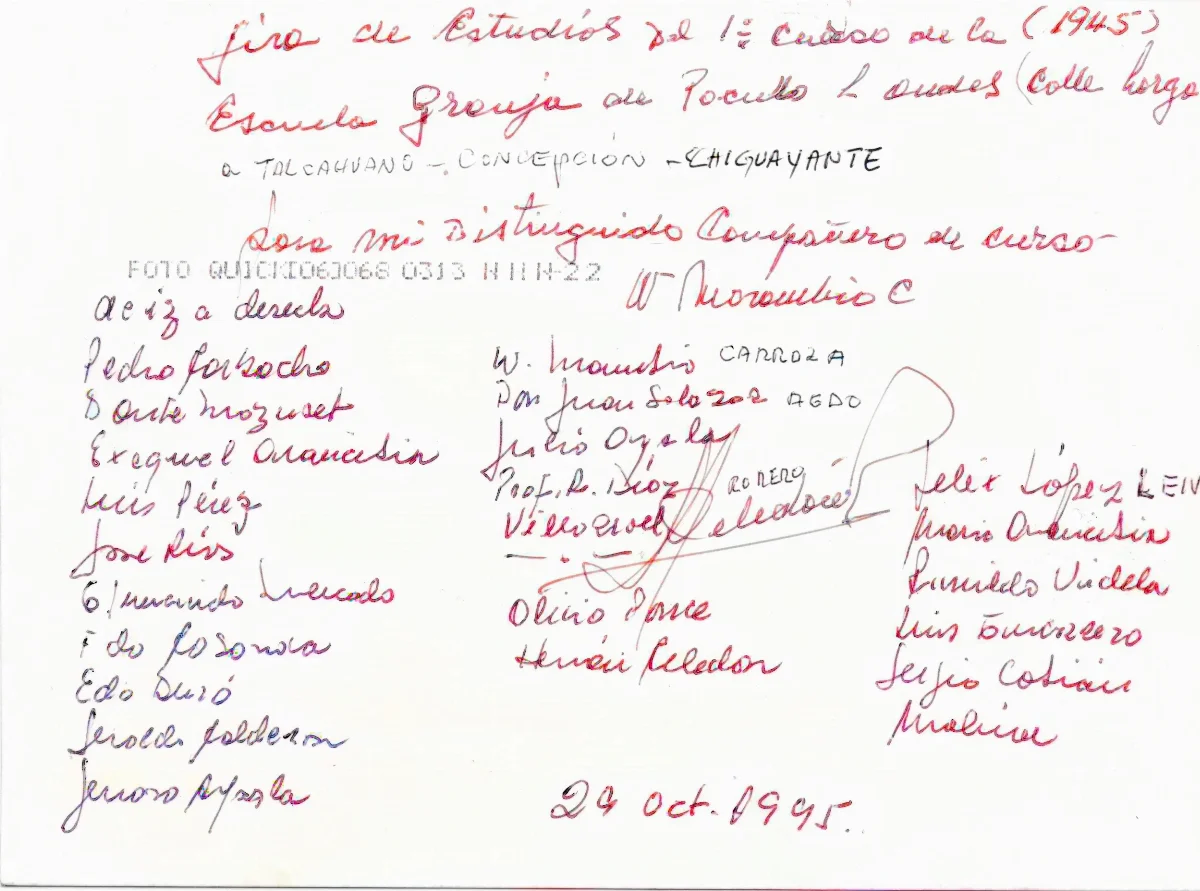 Jira de Estudios del 1º curso de la (1945)
Escuela Granja de Pocuro L andes (Calle Larga
a TALCAHUANO - CONCEPCIÓN - CHIGUAYANTE
Para mi Distinguido Compañero de curso-
FOTO QUICK
W Marambio C
de iz a derecha
Pedro
Dante
Exequiel Arancibia
Luis Pérez
Jose Ríos
Mercado
Fdo
Edo
Calderon
Jenaro Ayala
W. Marambio CARROZA
Don Juan Salazar AEDO
Julio Ayala
Prof. R. Díaz ROMERO
Villarroel
Olivio Ponce
Hernán Celedon
Felix López LEIV
Mario Arancibia
Ramildo Videla
Luis Guerrero
Sergio Cotián
Molina
29 Oct. 1995.